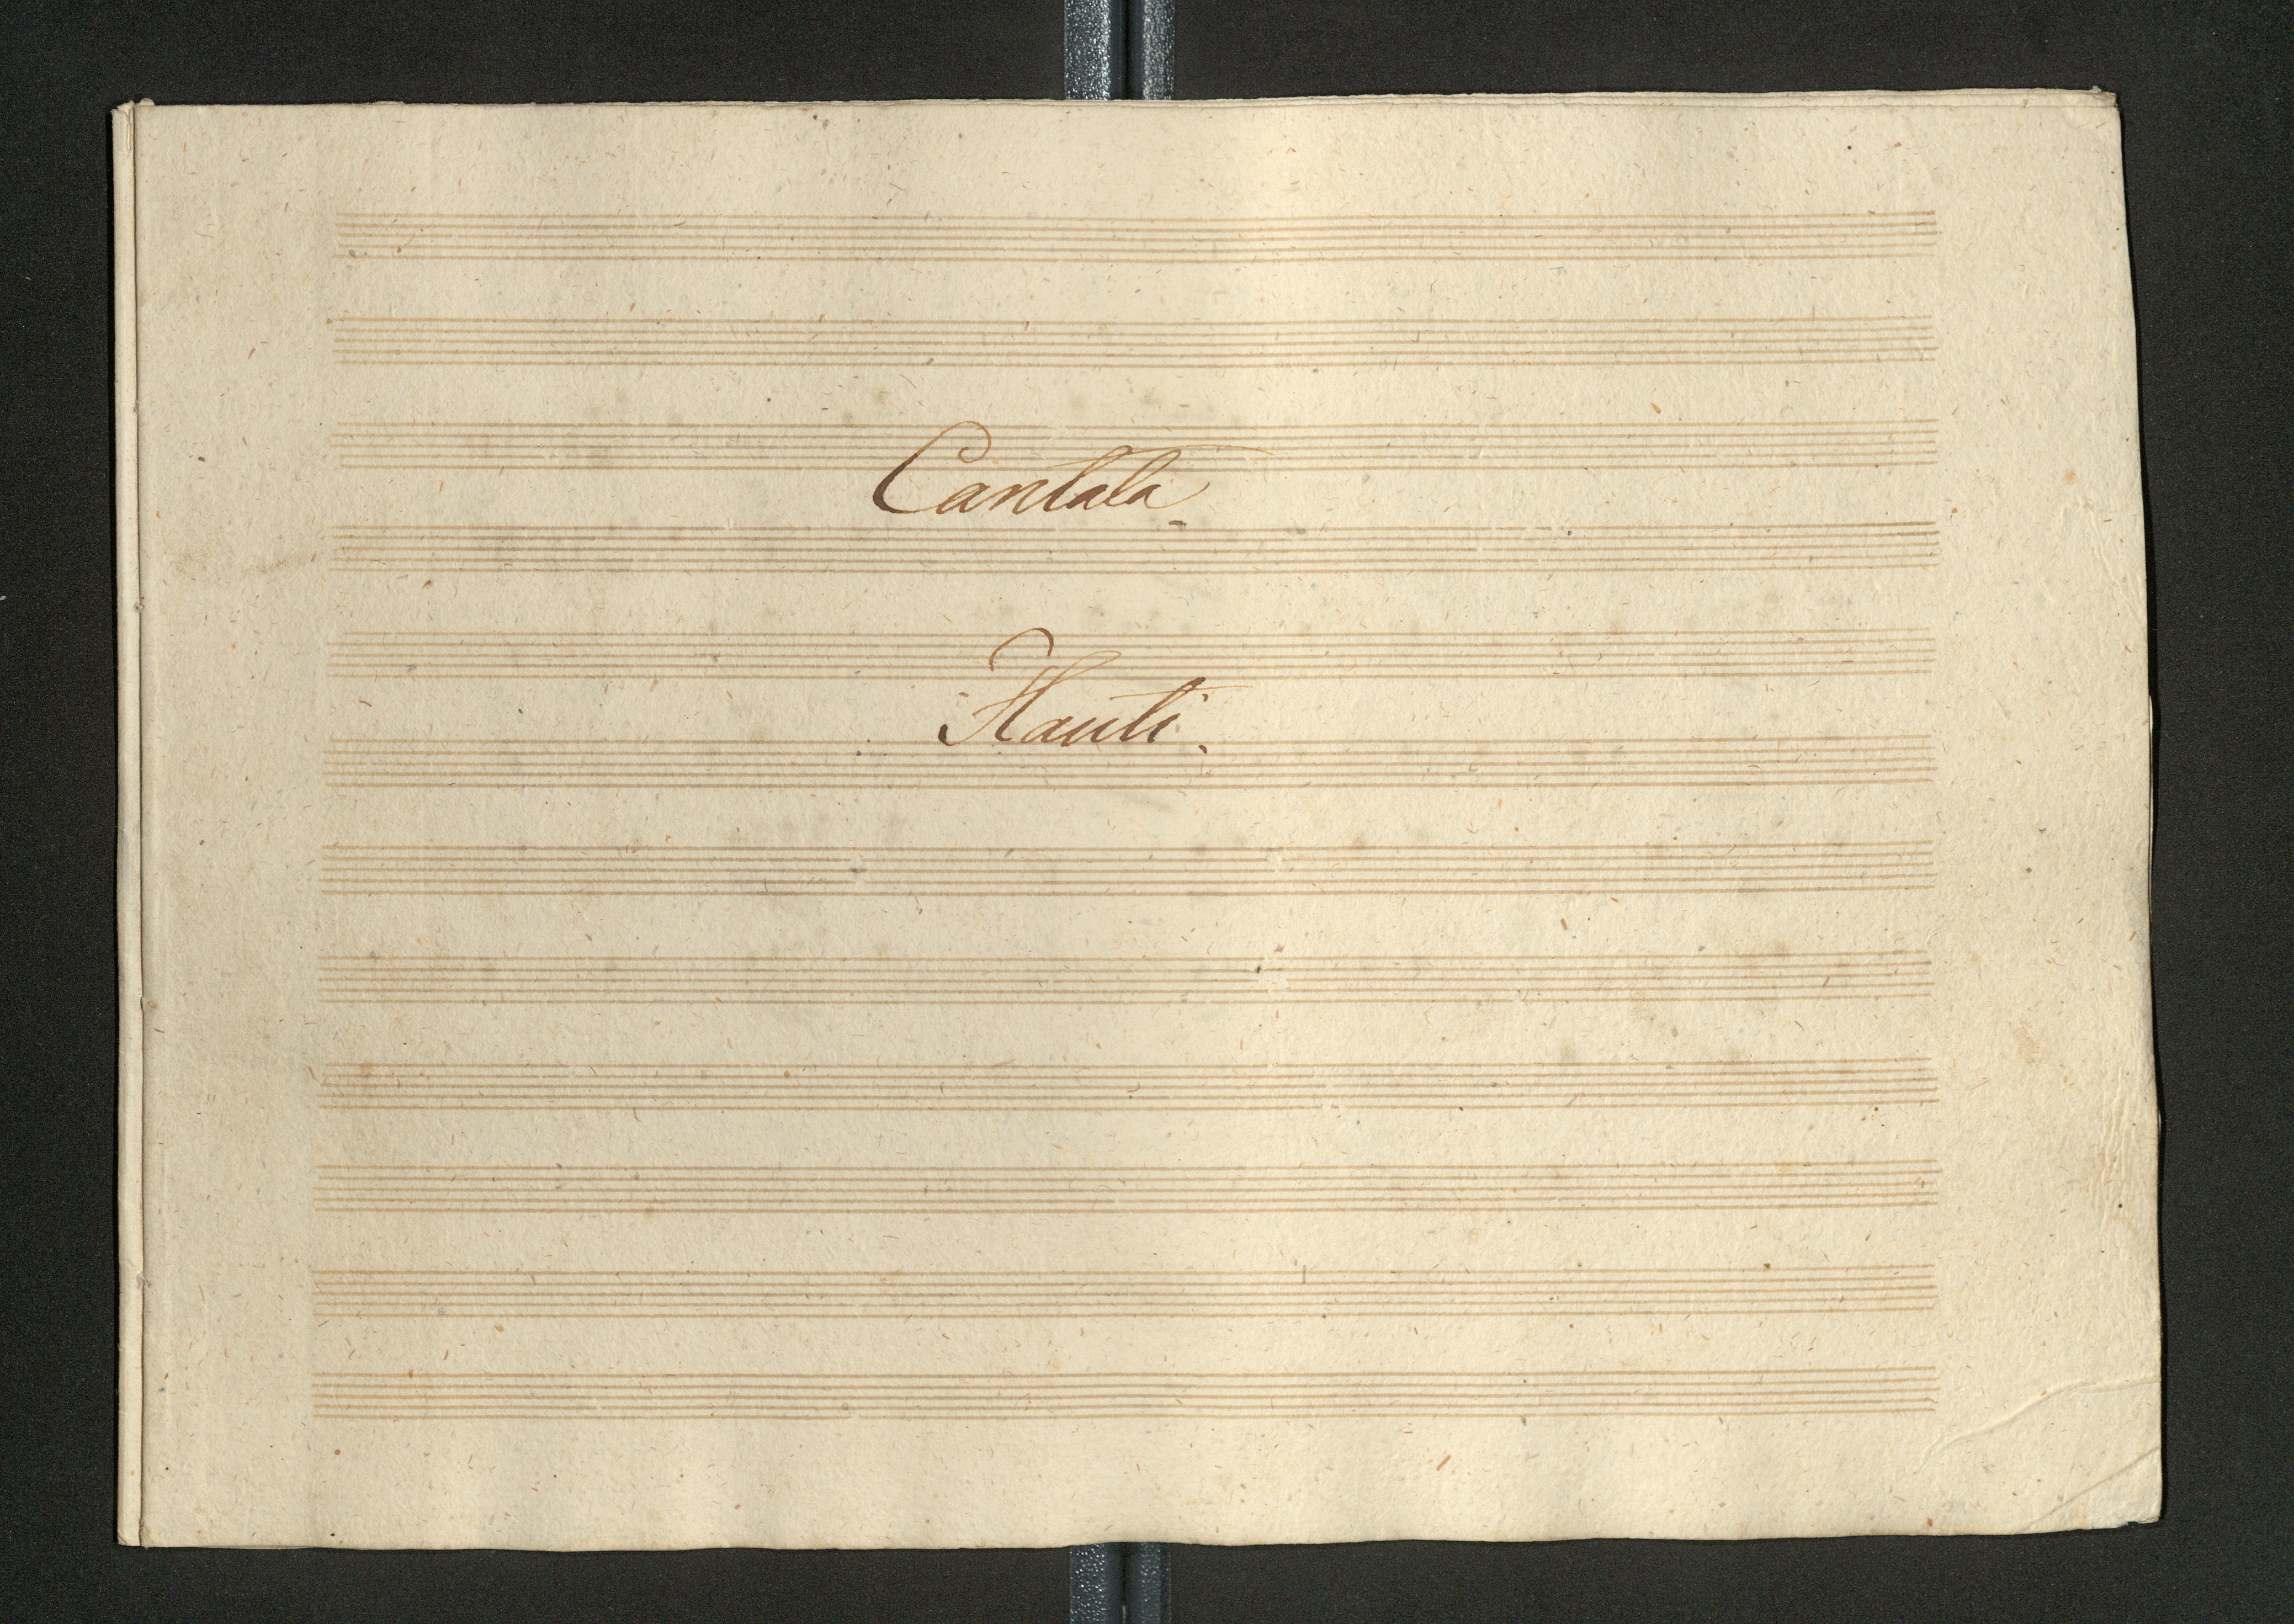 Cantata
Flauti.